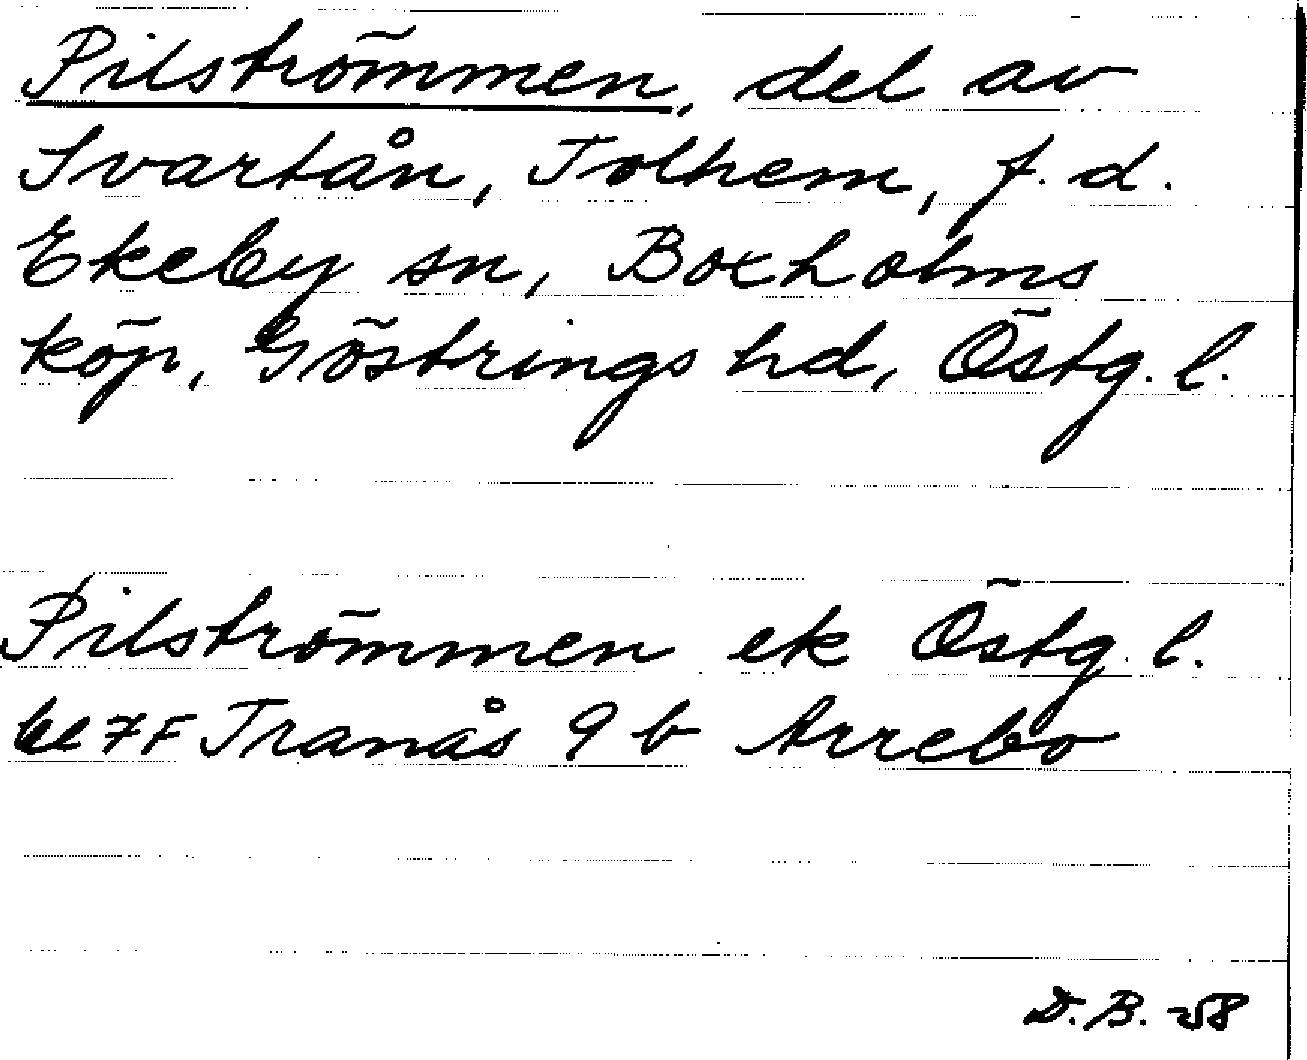 Pilströmmen, del av
Svartån, Tolhem, f.d.
Ekeby sn, Boxholms
köp, Göstrings hd, Östg. l.
Pilströmmen ek Östg. l.
bl 7F Tranås 9 b Arrebo
D.B. -58